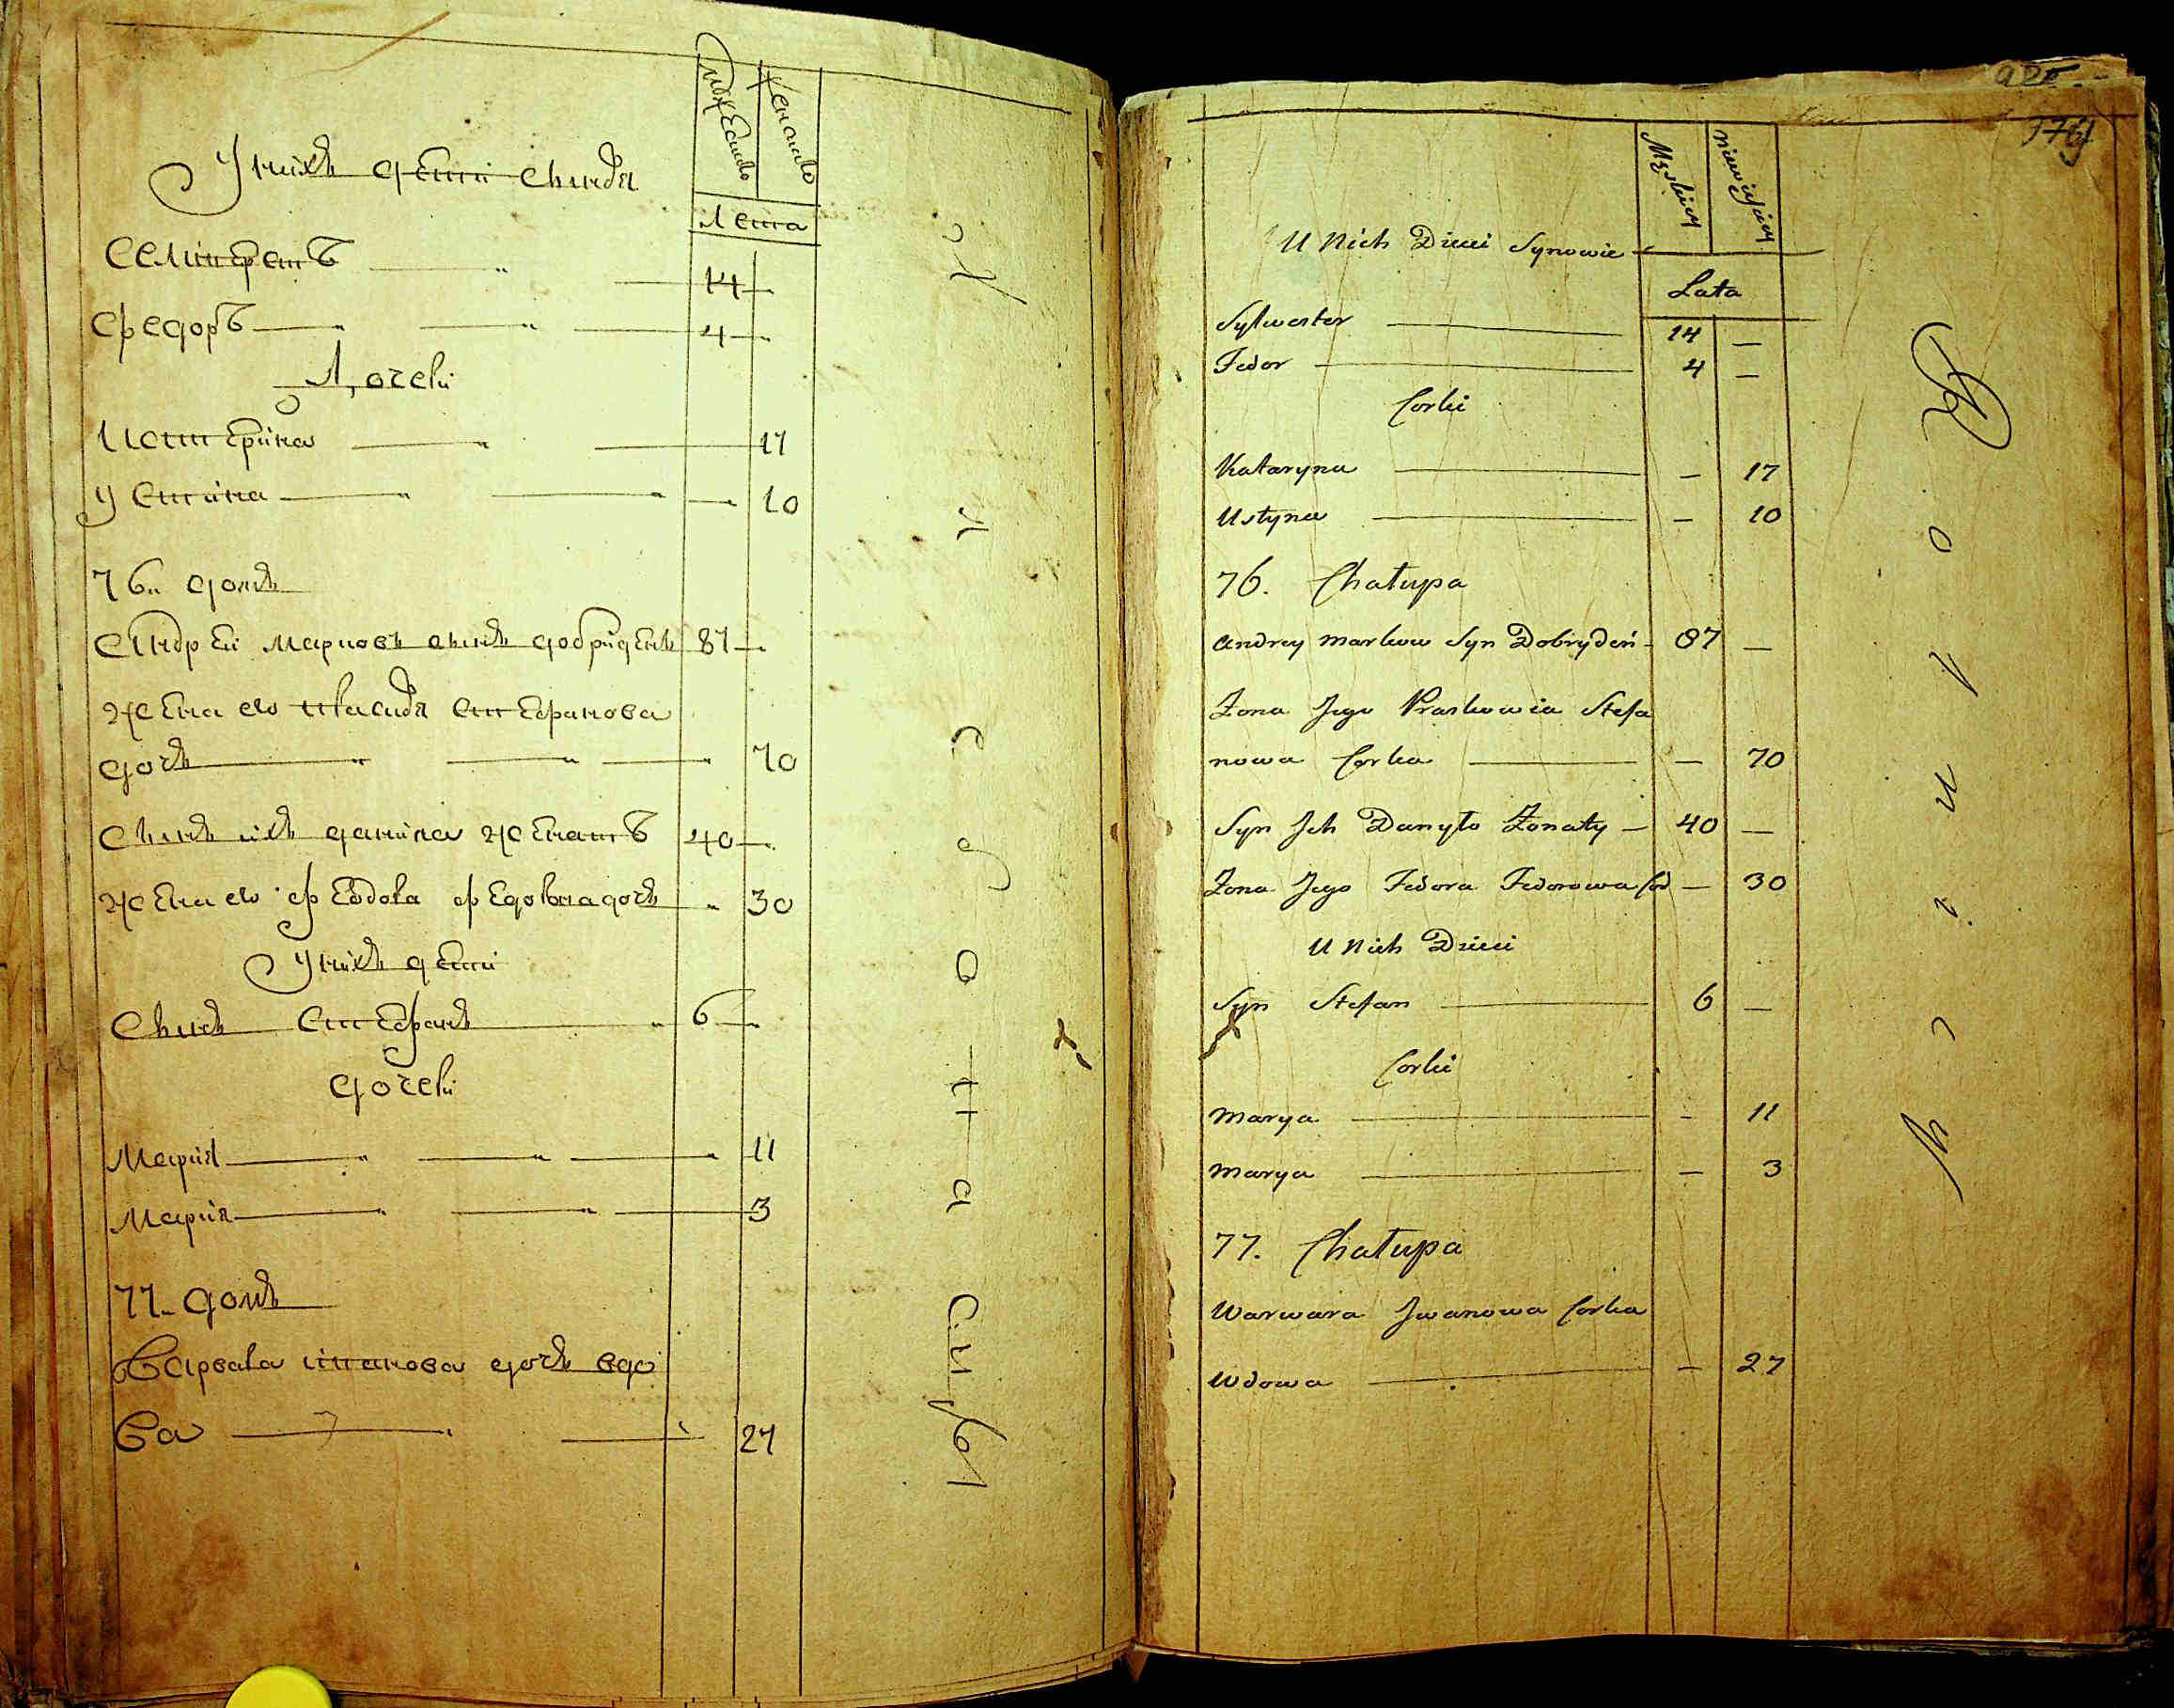 У нихъ дети сыновя
мужеско
женско
лета
Селиверстъ 14
Федоръ 4
Дочки
Катерина 17
Устина 10
76 домъ
Андрей Марковъ сынъ Добриденъ 87
жена его Праскивя Стефанова
дочь 70
Сынъ ихъ Данила женатъ 40
жена его Федора Федорова дочь 30
У нихъ дети
Сынъ Стефанъ 6
дочки
Мария 11
Мария 3
77 домъ
Варвара Иванова дочь вдо
ва 27
U Nich Dzieci Synowie
Męskiey
niewieściey
Lata
Sylwester — 14 —
Fedor — 4 —
Corki
Kataryna — — 17
Ustyna — — 10
76. Chałupa
Andrey Markow Syn Dobrydeń - 87 —
Zona Jego Praskowia Stefa
nowa Corka — — 70
Syn Jch Danyło Zonaty — 40 —
Zona Jego Fedora Fedorowa Cor — 30
U Nich Dzieci
Syn Stefan — 6 —
Corki
Marya — - 11
Marya — — 3
77. Chałupa
Warwara Jwanowa Corka
Wdowa — — 27